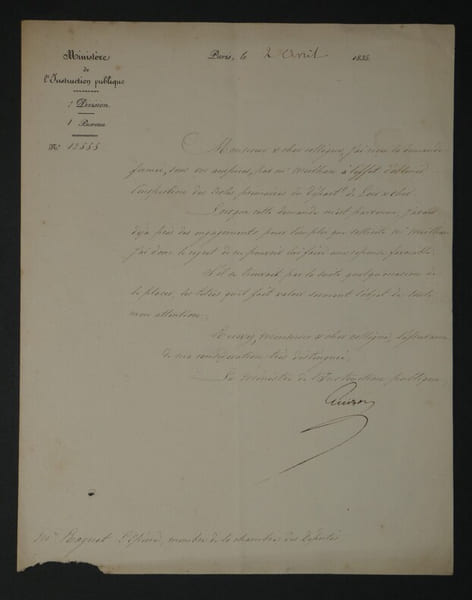 Ministère
de
l'Instruction publique
2 Division
1 Bureau
N° 12555
Paris, le 2 Avril 1835.
Monsieur et cher collègue, j'ai reçu la demande
formée, sous vos auspices, par mr à l'effet d'obtenir
l'inspection des écoles primaires du départt. de Loir et cher.
Lorsque cette demande m'est parvenue, j'avais
déjà pris des engagements pour l'emploi que sollicite mr
j'ai donc le regret de ne pouvoir lui faire une réponse favorable.
S'il se trouvait par la suite quelque occasion de
le placer, les titres qu'il fait valoir seraient l'objet de toute
mon attention.
Recevez, monsieur et cher collègue, l'assurance
de ma considération très distinguée.
Le ministre de l'Instruction publique
Guizot
Mr. membre de la chambre des Députés